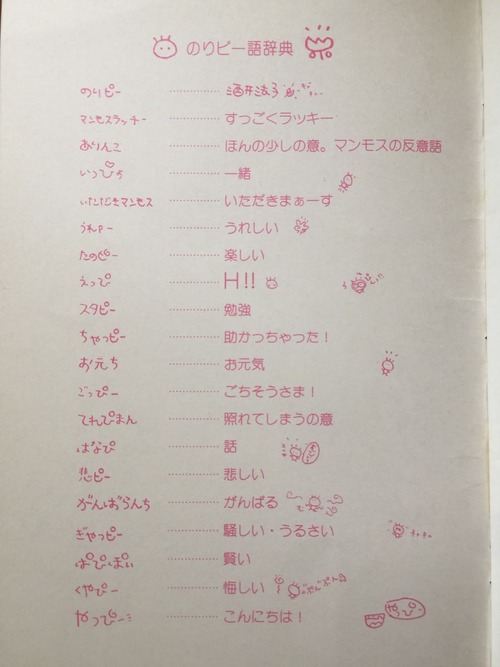 のりピー語辞典
のりピー ‥‥‥‥‥ 酒井法子
マンモスラッキー ‥‥‥‥‥ すっごくラッキー
ありんこ ‥‥‥‥‥ ほんの少しの意。マンモスの反意語
いっぴち ‥‥‥‥‥ 一緒
いただきマンモス ‥‥‥‥‥ いただきまぁーす
うれピー ‥‥‥‥‥ うれしい
たのピー ‥‥‥‥‥ 楽しい
えっぴ ‥‥‥‥‥ H!!
スタピー ‥‥‥‥‥ 勉強
ちゃっピー ‥‥‥‥‥ 助かっちゃった!
お元ち ‥‥‥‥‥ お元気
ごっぴー ‥‥‥‥‥ ごちそうさま!
てれぴまん ‥‥‥‥‥ 照れてしまうの意
はなぴ ‥‥‥‥‥ 話
悲ピー ‥‥‥‥‥ 悲しい
がんばらんち ‥‥‥‥‥ がんばる
ぎゃっピー ‥‥‥‥‥ 騒しい・うるさい
ぱぴぽい ‥‥‥‥‥ 賢い
くやぴー ‥‥‥‥‥ 悔しい
やっぴー ‥‥‥‥‥ こんにちは!